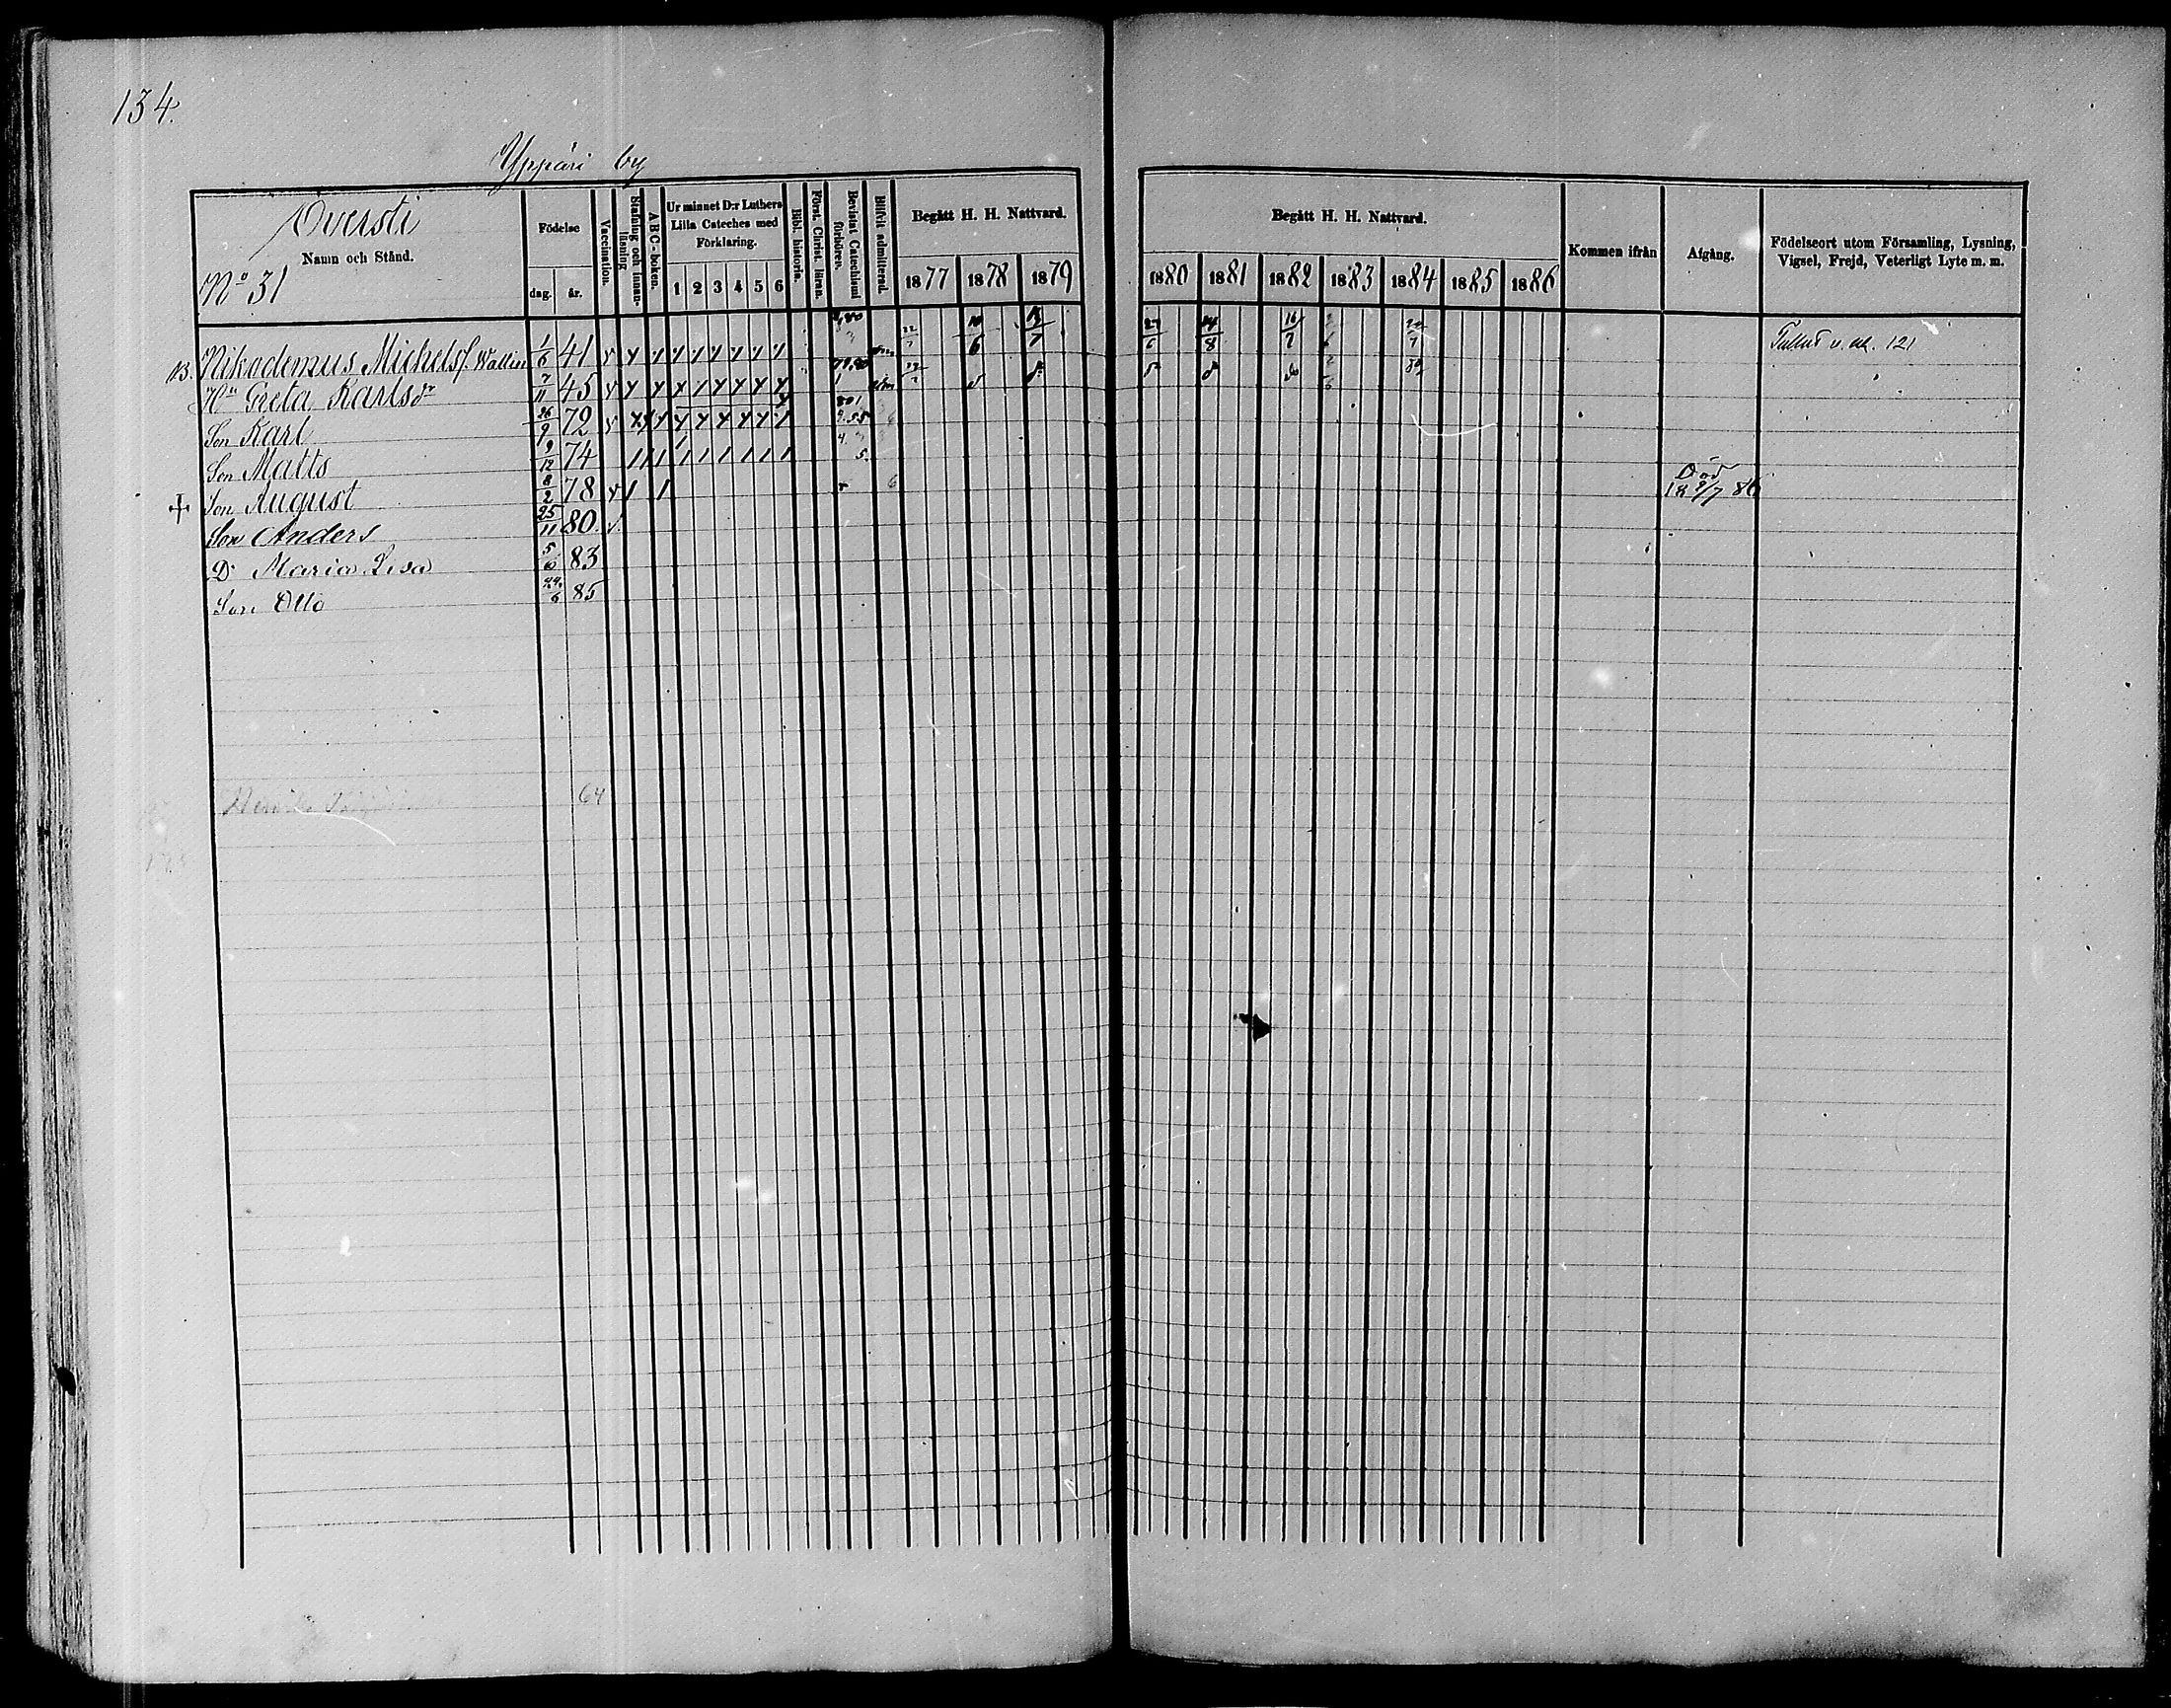 134.
Yppäri by
Översti
Namn och Stånd.
No 31
Födelse
dag. år.
Vaccination.
Stafning och innan-läsning
ABC-boken.
Ur minnet D:r Luthers Lilla Cateches med Förklaring.
1 2 3 4 5 6
Bibl. historia.
Först. Christ. läran.
Bevistat Catechismi förhören.
Blifvit admitterad.
Begått H. H. Nattvard.
1877 1878 1879
Begått H. H. Nattvard.
1880 1881 1882 1883 1884 1885 1886
Kommen ifrån
Afgång.
Födelseort utom Församling, Lysning, Vigsel, Frejd, Veterligt Lyte m. m.
B. Nikodemus Michelsf. Wallin 1/6 41 22/7 10/6 13/7 27/6 14/8 16/7 121
Hu Greta Karlsdr 7/11 45
Son Karl 26/9 72
Son Matts 9/12 74
Son August 8/2 78 Död 18 9/7 86
Son Anders 25/11 80
Dr Maria Lisa 5/6 83
Son Otto 24/6 85
64